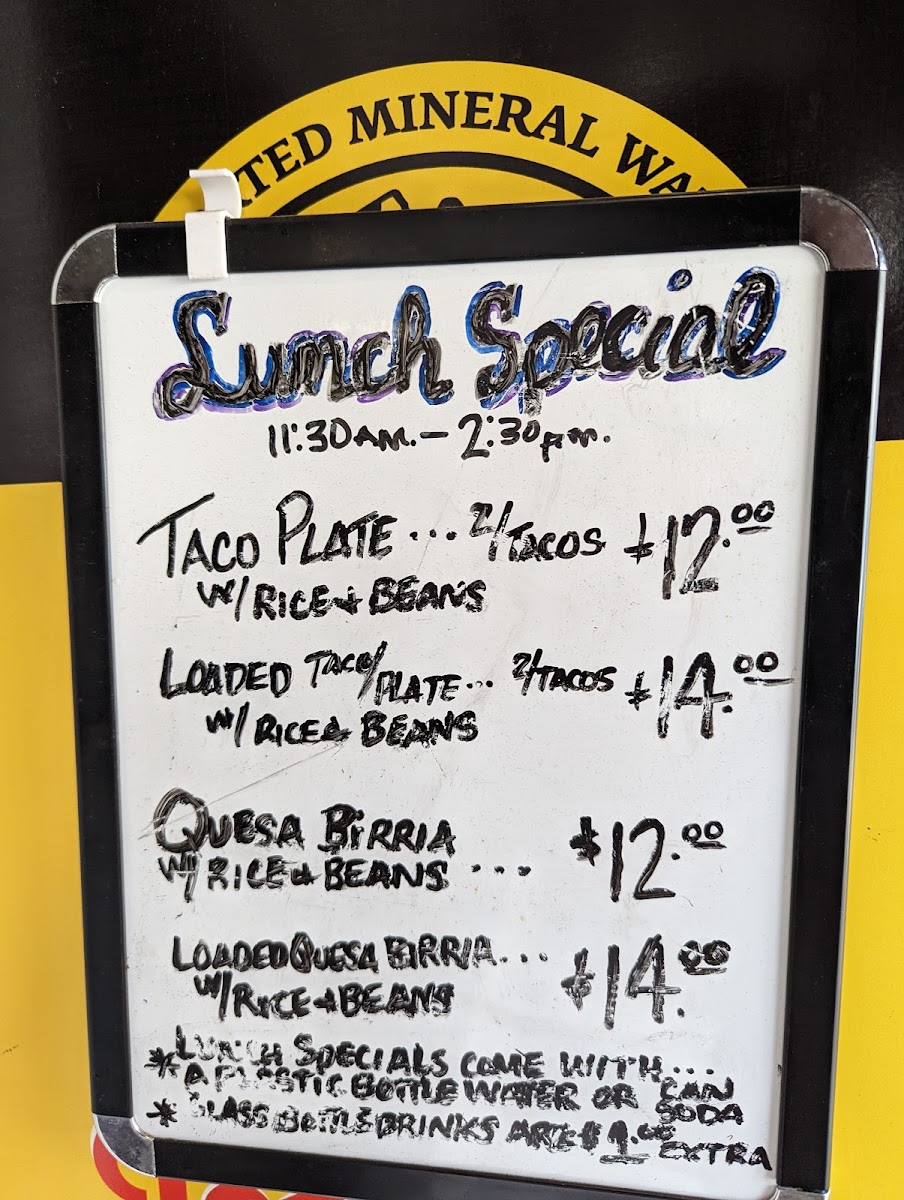 TED MINERAL WA
Lunch Special
11:30AM. - 2:30pm.
TACO PLATE ... 2/TACOS $12.00
W/ RICE & BEANS
LOADED TACO/PLATE... 2/TACOS $14.00
W/ RICE & BEANS
QUESA BIRRIA
W/ RICE & BEANS ... $12.00
LOADED QUESA BIRRIA... $14.00
W/ RICE & BEANS
* LUNCH SPECIALS COME WITH...
A PLASTIC BOTTLE WATER OR CAN SODA
* GLASS BOTTLE DRINKS ARE $1.00 EXTRA